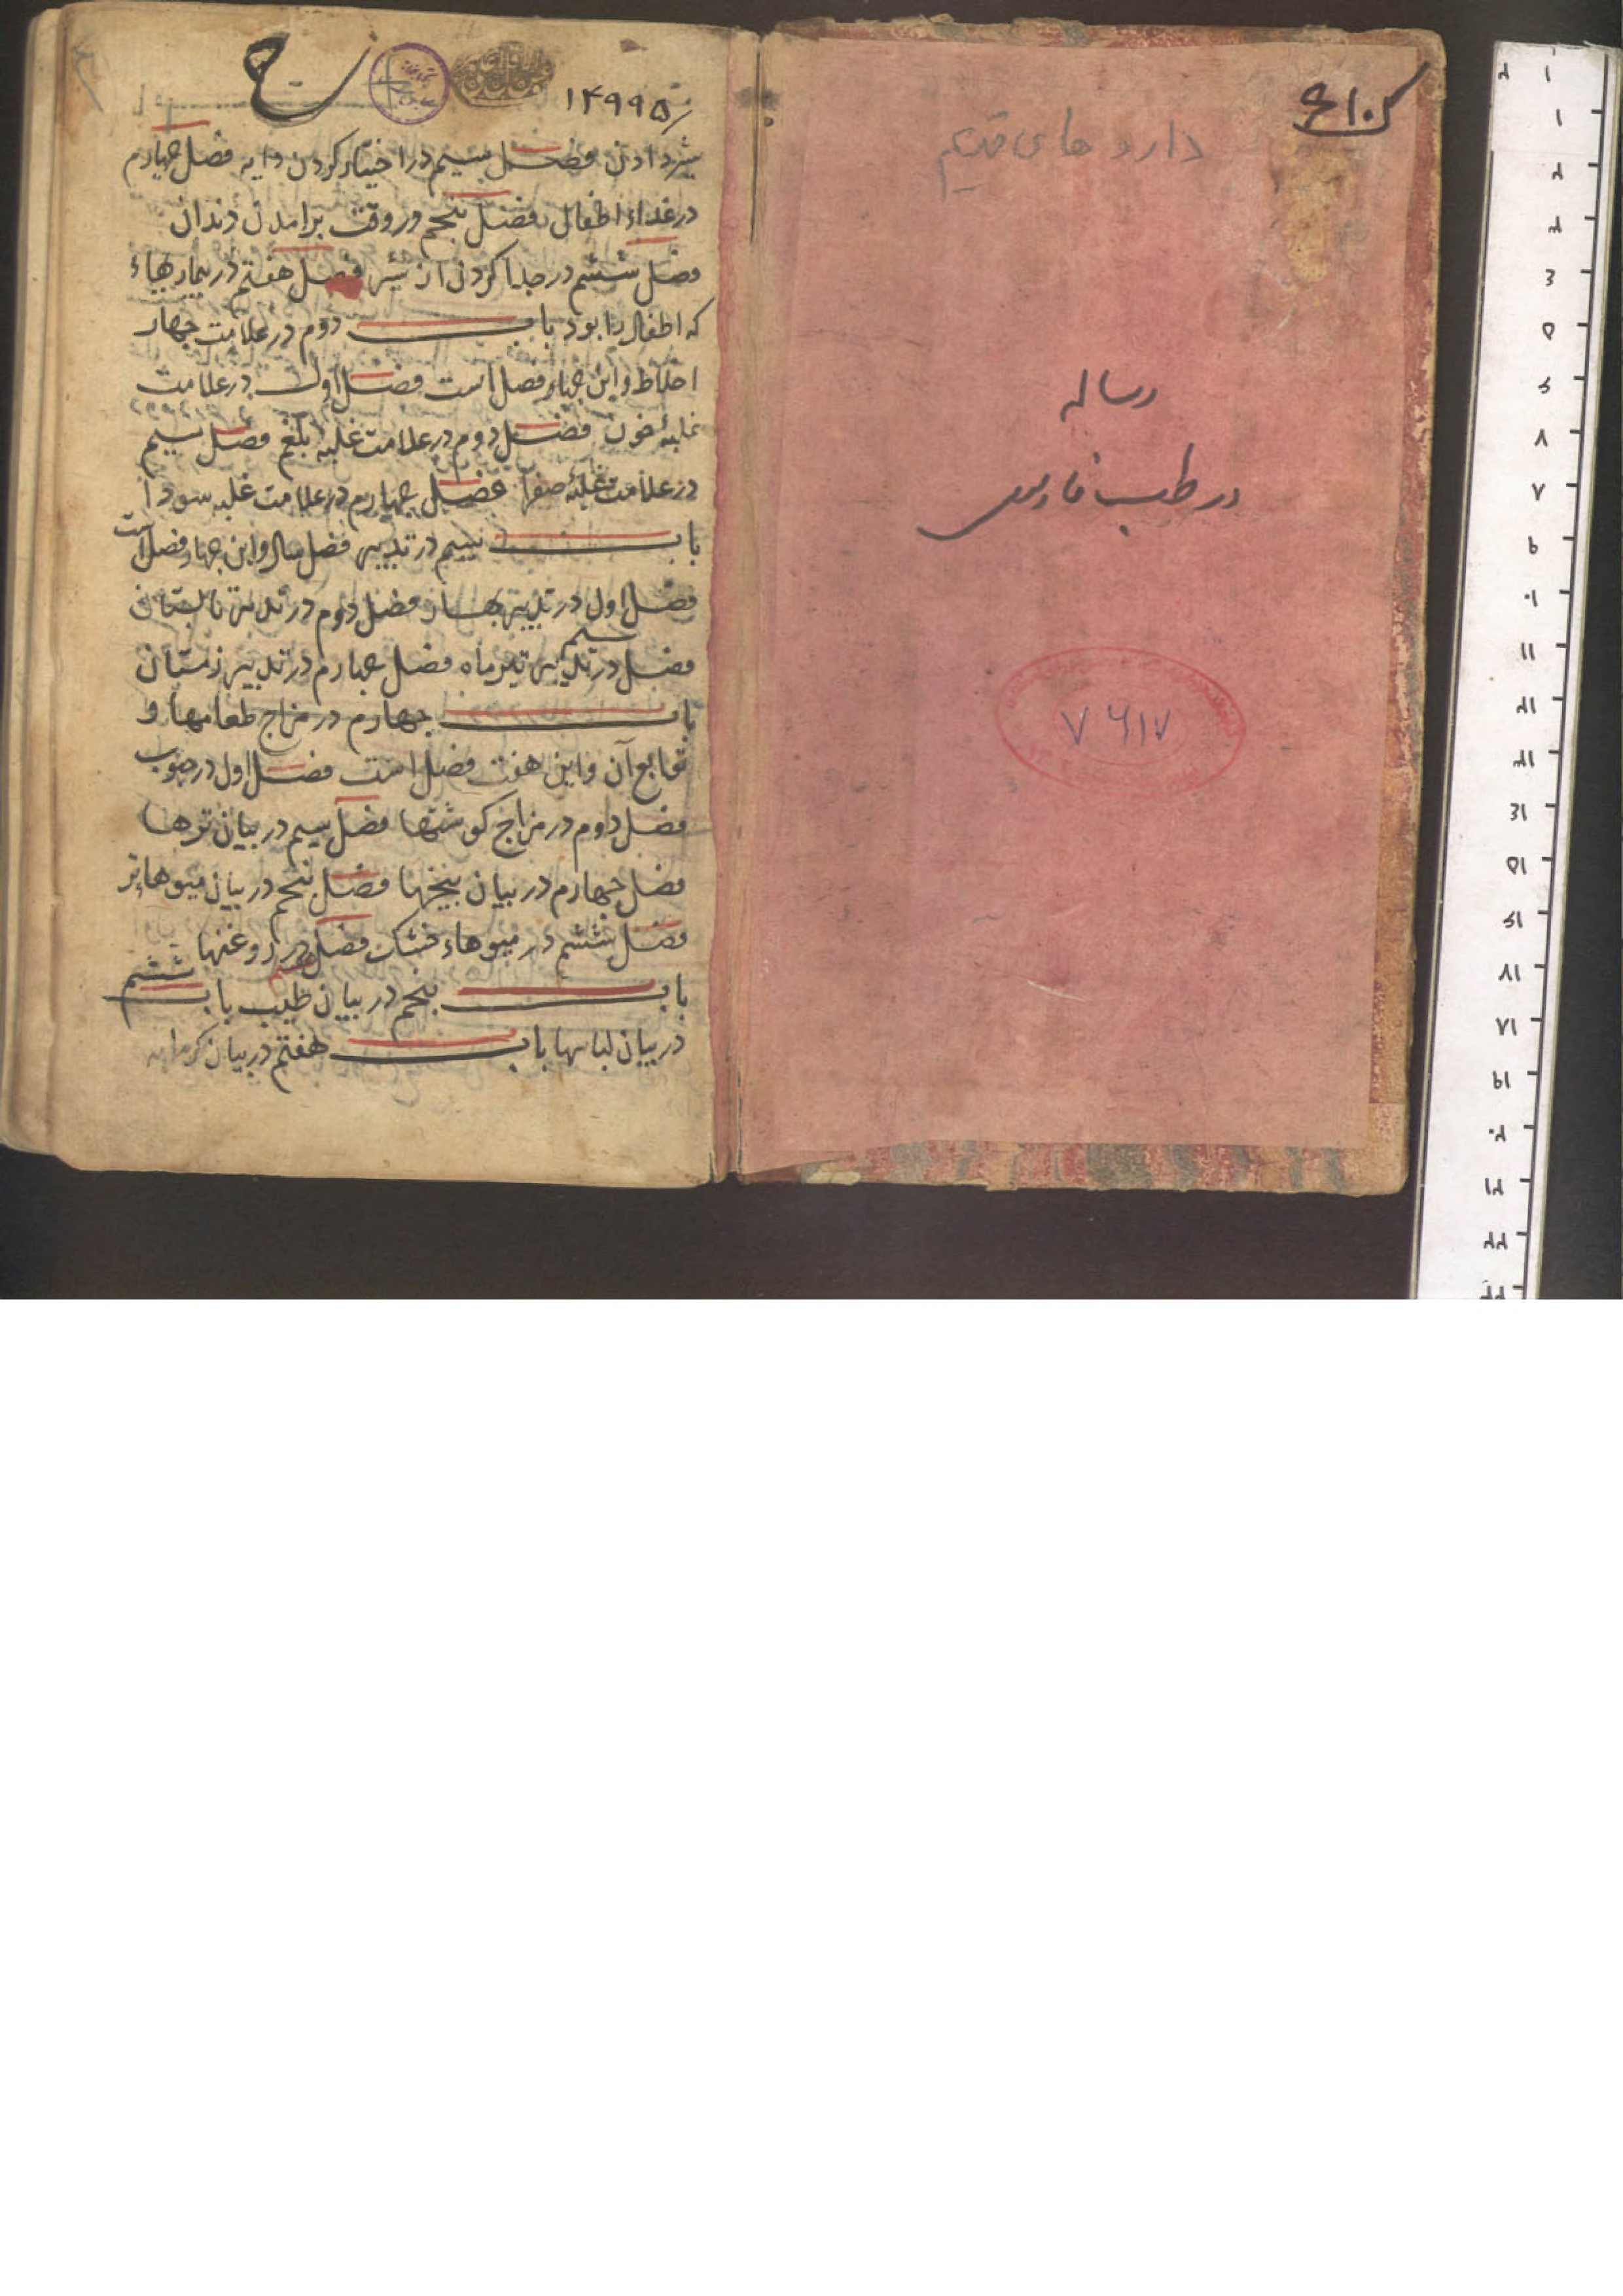 ۶۱۰۵
داروهای قدیم
رساله
در طب فارسی
۷۶۱۷
۱۴۹۹۵
شیر دادن فصل سیم در اختیار کردن دایه فصل چهارم
در غداء اطفال فصل پنجم در وقت برامدن دندان
فصل ششم در جدا کردن از شیر فصل هفتم در بیماریهاء
که اطفال را بود باب دوم در علامت چهار
اخلاط و این چهار فصل است فصل اول در علامت
غلبهٔ خون فصل دوم در علامت غلبه بلغم فصل سیم
در علامت غلبهٔ صفرا فصل چهارم در علامت غلبه سودا
باب سیم در تدبیر فصل سال و این چهار فصل است
فصل اول در تدبیر بهار فصل دوم در تدبیر تابستان
فصل سیم در تدبیر تیر ماه فصل چهارم در تدبیر زمستان
باب چهارم در مزاج طعامها و
توابع آن و این هفت فصل است فصل اول در حبوب
فصل دوم در مزاج کوشتها فصل سیم در بیان ترها
فصل چهارم در بیان بیخها فصل پنجم در بیان میوهاء تر
فصل ششم در میوهاء خشک فصل هفتم در روغنها
باب پنجم در بیان طیب باب ششم
در بیان لباسها باب هفتم در بیان کرمابه